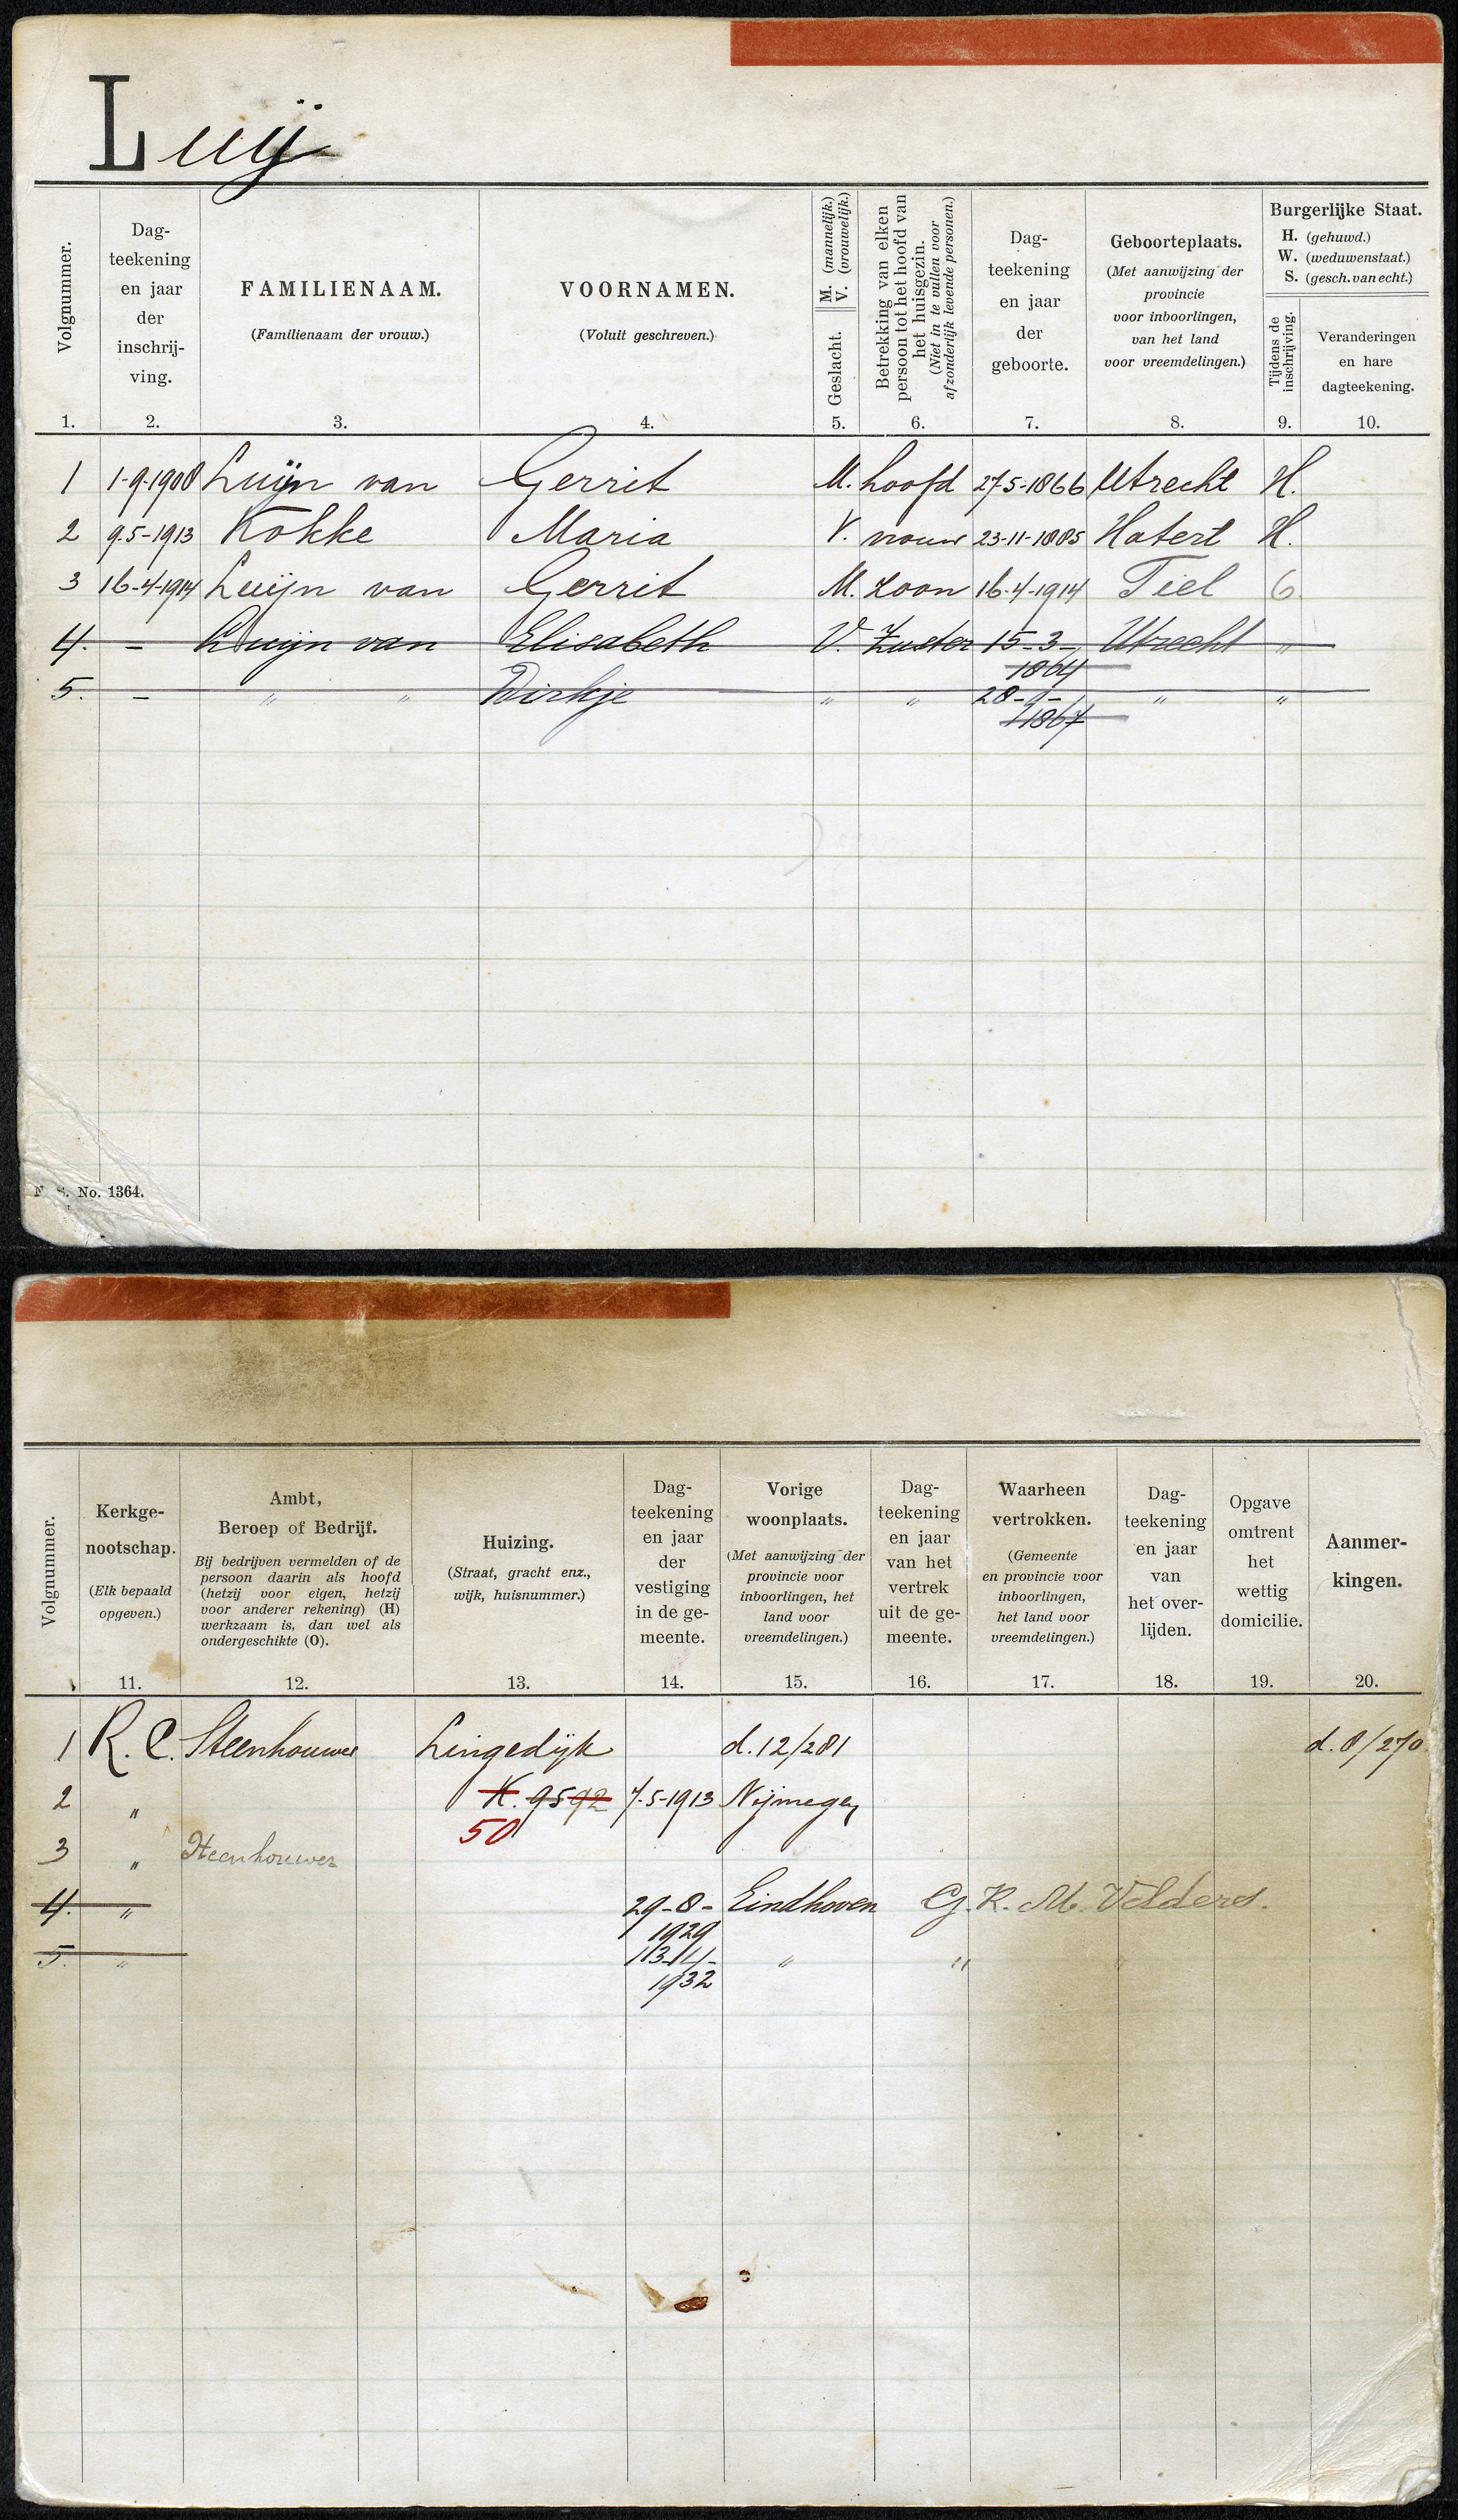 Luij
Volgnummer.
Dag-
teekening
en jaar
der
inschrij-
ving.
FAMILIENAAM.
(Familienaam der vrouw.)
VOORNAMEN.
(Voluit geschreven.)
Geslacht. M. (mannelijk.)
V. (vrouwelijk.)
Betrekking van elken
persoon tot het hoofd van
het huisgezin.
(Niet in te vullen voor
afzonderlijk levende personen.)
Dag-
teekening
en jaar
der
geboorte.
Geboorteplaats.
(Met aanwijzing der
provincie
voor inboorlingen,
van het land
voor vreemdelingen.)
Burgerlijke Staat.
H. (gehuwd.)
W. (weduwenstaat.)
S. (gesch. van echt.)
Tijdens de
inschrijving.
Veranderingen
en hare
dagteekening.
1. 2. 3. 4. 5. 6. 7. 8. 9. 10.
1 1-9-1908 Luijn van Gerrit M. hoofd 27-5-1866 Utrecht H.
2 9-5-1913 Kokke Maria V. vrouw 23-11-1885 Hatert H.
3 16-4-1914 Luijn van Gerrit M. zoon 16-4-1914 Tiel
4. – Luijn van Elisabeth V. Zuster 15-3- Utrecht "
1864
5. – " " Dirkje " " 28-9- " "
1867
No. 1364.
Volgnummer.
Kerkge-
nootschap.
(Elk bepaald
opgeven.)
Ambt,
Beroep of Bedrijf.
Bij bedrijven vermelden of de
persoon daarin als hoofd
(hetzij voor eigen, hetzij
voor anderer rekening) (H)
werkzaam is, dan wel als
ondergeschikte (O).
Huizing.
(Straat, gracht enz.,
wijk, huisnummer.)
Dag-
teekening
en jaar
der
vestiging
in de ge-
meente.
Vorige
woonplaats.
(Met aanwijzing der
provincie voor
inboorlingen, het
land voor
vreemdelingen.)
Dag-
teekening
en jaar
van het
vertrek
uit de ge-
meente.
Waarheen
vertrokken.
(Gemeente
en provincie voor
inboorlingen,
het land voor
vreemdelingen.)
Dag-
teekening
en jaar
van
het over-
lijden.
Opgave
omtrent
het
wettig
domicilie.
Aanmer-
kingen.
11. 12. 13. 14. 15. 16. 17. 18. 19. 20.
1 R.C. Steenhouwer Lingedijk d. 12/281 d. 8/270
2 " K. 95 92 7-5-1913 Nijmegen
50
3 " Steenhouwer
4. " 29-8- Eindhoven G.K. M. Velders.
1929
5. " 13-11- " "
1932